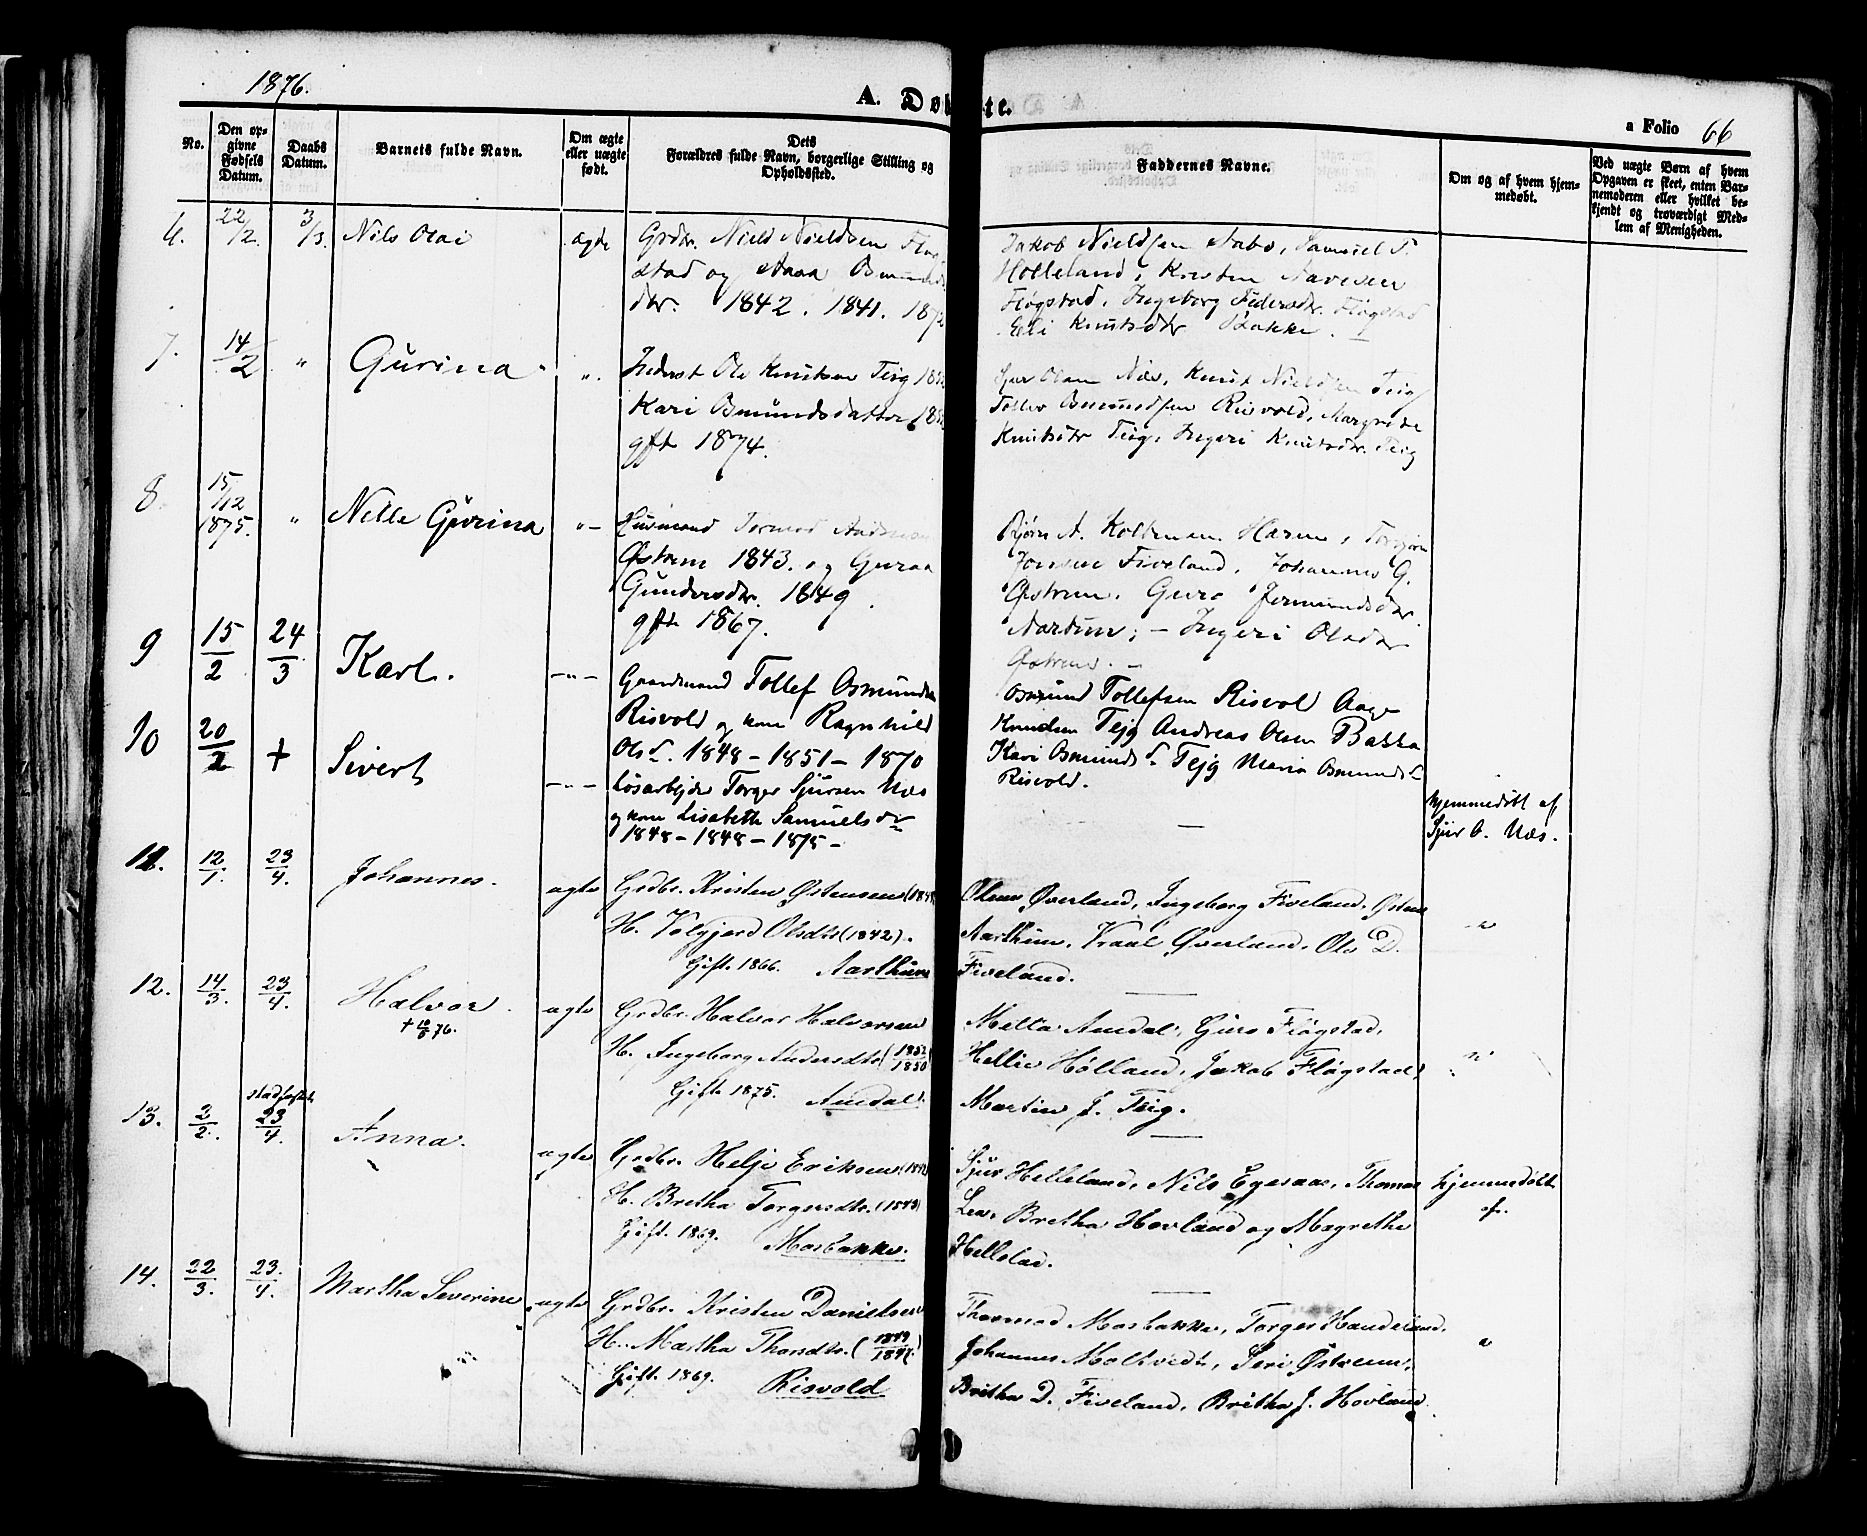 1876.
A. Døbte.
a Folio 66
No.
Den op-
givne
Fødsels
Datum.
Daabs
Datum.
Barnets fulde Navn.
Om ægte
eller uægte
født.
Dets
Forældres fulde Navn, borgerlige Stilling og
Opholdssted.
Faddernes Navne.
Om og af hvem hjem-
medøbt.
Ved uægte Børn af hvem
Opgaven er skeet, enten Bar-
nemoderen eller hvilket be-
kjendt og troværdigt Med-
lem af Menigheden.
6. 22/2. 3/3. Nils Olai ægte
Grdbr. Nield Nieldsen Fløg-
stad og Aasa Osmunds
dtr. 1842. 1841. 1872
Jakob Nieldsen Sabø, Samuel T.
Hølleland, Kristen Aavesen
Fløgstad, Ingeborg Pedersdtr. Fløgstad
Eli Knutsdtr Bakke.
7. 14/2 " Gurina "
Inderst Ole Knutsen Teig
Kari Osmundsdatter
gft 1874.
Sjur Olsen Næs, Knut Nieldsen Teig
Tollev Osmundsen Risvold, Margrete
Knutsdtr Teig, Ingeri Knutsdtr. Teig
8. 15/12 1875. " Nille Gurina "
Husmand Tormod Andersen
Østrem 1843. og Guraa
Gundersdtr. 1849.
gft 1867.
Bjørn A. Torbjørn
Jonsen Fiveland, Johannes G.
Østrem, Guro Jermundsdtr.
Aartun; - Ingeri Olsdtr
Østrem. -
9 15/2 24/3 Karl. -"-
Gaardmand Tollef Osmunds
Risvold og kone Ragnhild
Olsd. 1848 - 1851 - 1870
Osmund Tollefsen Risvol Aage
Knudsen Tejg Andreas Olsen Bakka
Kari Osmunds d. Tejg Maria Osmunds d
Risvold.
10 20/2 + Sivert -"-
Løsarbejder Torger Sjursen Næs
og kone Lisabeth Samuels dtr
1848 - 1848 - 1875 -
—
hjemmedøbt af
Sjur O. Næs.
11. 12/1. 23/4. Johannes. ægte
Grdbr. Kristen Østensen (184
H. Valgjerd Olsdtr (1842).
Gift. 1866. Aarthun
Oliver Øverland, Ingeborg Fiveland, Østen
Aarthun, Vraal Øverland, Ole D.
Fiveland.
"
12. 14/3. 23/4. Halvor. ægte
+ 10/5 76.
Grdbr. Halvor Halvorsen
H. Ingeborg Andersdtr (1852/1850)
Gift 1875. Amdal.
Metta Amdal, Guro Fløgstad,
Hellie Hølland, Jakob Fløgstad,
Martin J. Teig.
"
13. 2/2. stadfæstet 23/4. Anna. ægte
Grdbr. Helje Eriksen (1842
H. Bretha Torgersdtr. (1843)
Gift. 1869. Mosbakke.
Sjur Helleland, Nils Egesaas, Thomas
Lea, Bretha Hovland og Magrethe
Hellestad.
hjemmedøbt
af.
14. 22/3. 23./4. Martha Severine ægte
Grdbr. Kristen Danielsen
H. Martha Thorsdtr. (1849/1841)
Gift. 1869. Risvold
Thormod Mosbakke, Torger Handeland.
Johannes Moltvedt, Seri Østrem,
Britha D. Fiveland, Britha J. Hovland.
"